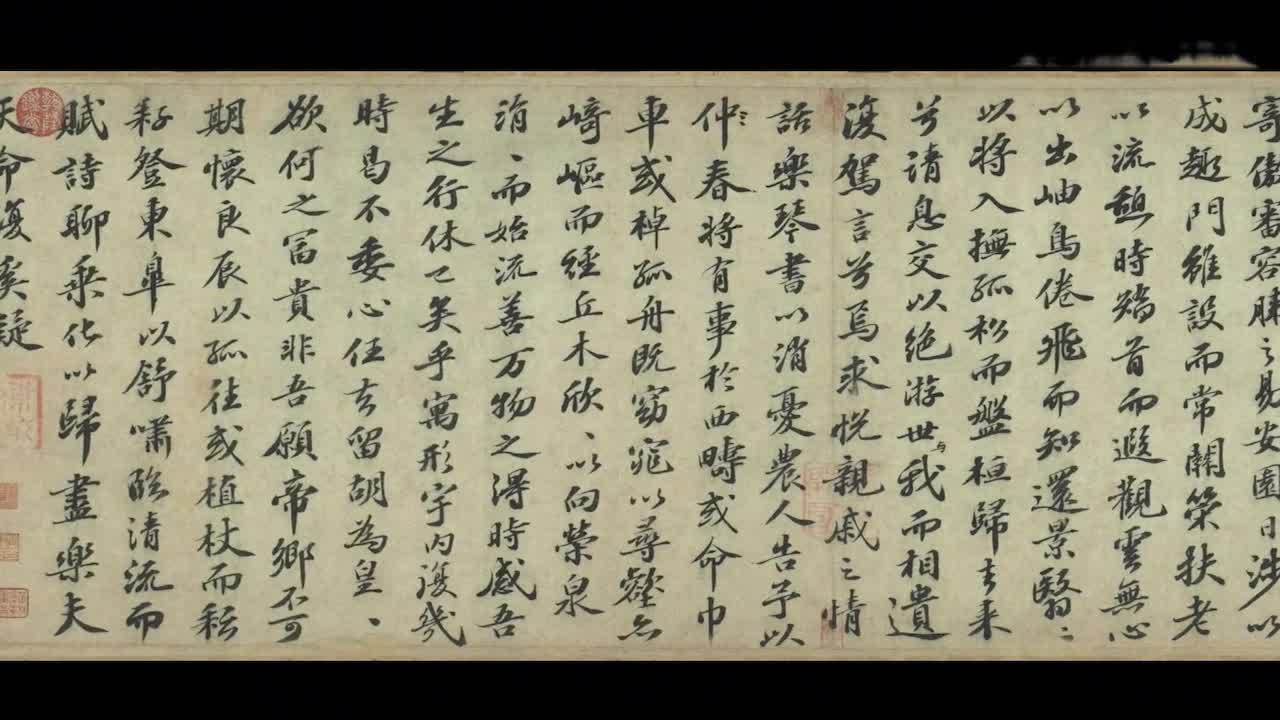 寄傲審容膝之易安園日涉以
成趣門雖設而常關策扶老
以流憩時矯首而遐觀雲無心
以出岫鳥倦飛而知還景翳〻
以將入撫孤松而盤桓歸去来
兮請息交以絶游世與我而相遺
復駕言兮焉求悅親戚之情
話樂琴書以消憂農人告予以
仲春將有事於西疇或命巾
車或棹孤舟既窈窕以尋壑亦
崎嶇而經丘木欣、以向榮泉
涓、而始流善万物之得時感吾
生之行休已矣乎寓形宇内復幾
時曷不委心任去留胡為皇、
欲何之富貴非吾願帝鄉不可
期懷良辰以孤往或植杖而耘
耔登東皐以舒嘯臨清流而
賦詩聊乘化以歸盡樂夫
天命復奚疑